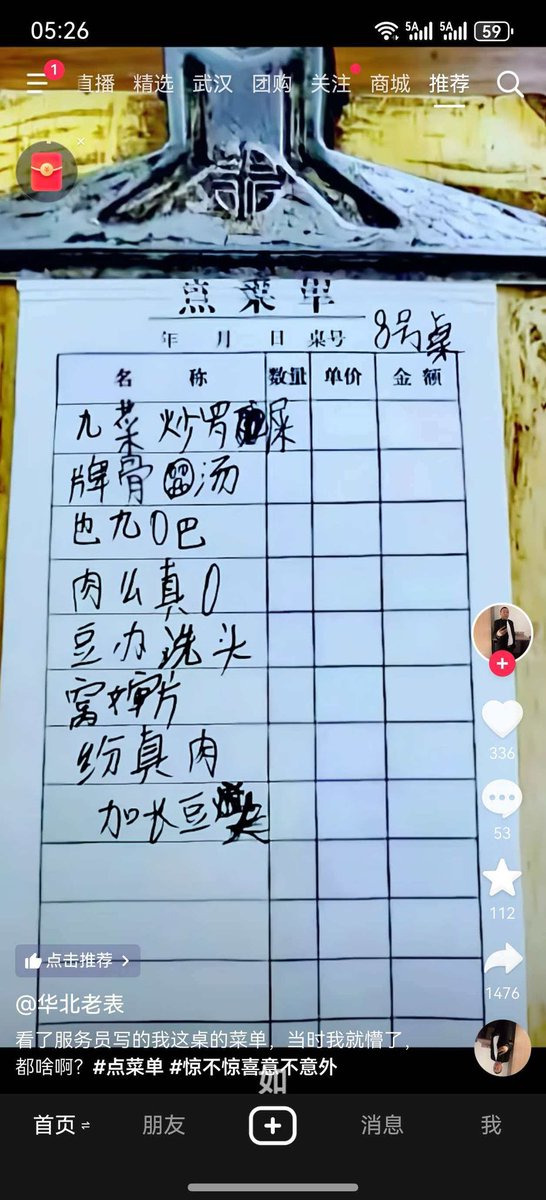 05:26
5A 5A 59
1
直播 精选 武汉 团购 关注 商城 推荐
点菜单
年 月 日 桌号 8号桌
名 称 数量 单价 金额
九菜炒罗屎
牌骨汤
也九0巴
肉么真0
豆办洗头
窝片
纷真肉
加长豆
336
53
112
1476
点击推荐 >
@华北老表
看了服务员写的我这桌的菜单，当时我就懵了，
都啥啊？#点菜单 #惊不惊喜意不意外
如
首页 朋友 消息 我